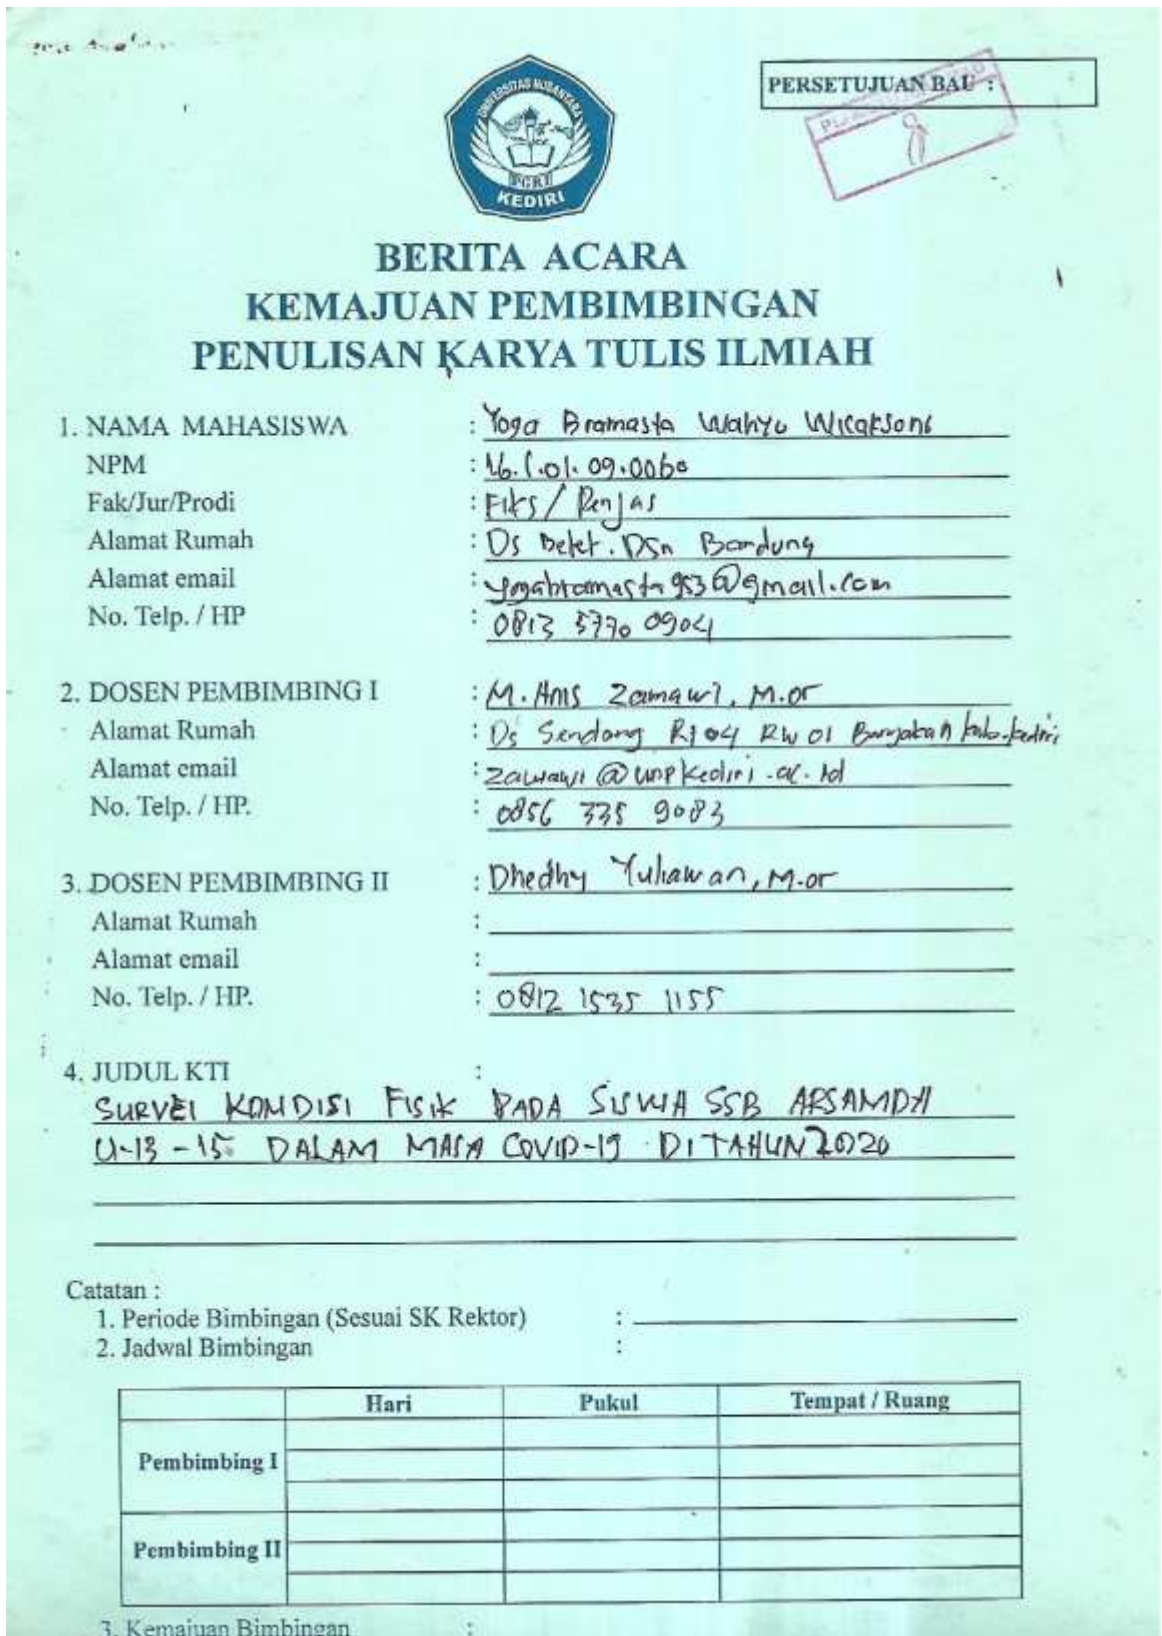 PERSETUJUAN BAU :
UNIVERSITAS NUSANTARA
PGRI
KEDIRI
BERITA ACARA
KEMAJUAN PEMBIMBINGAN
PENULISAN KARYA TULIS ILMIAH
1. NAMA MAHASISWA : Yoga Bramasta Wahyu Wicaksono
NPM : 16.1.01.09.0060
Fak/Jur/Prodi : FIKS / Penjas
Alamat Rumah : Ds Betet. DSn Bandung
Alamat email : yogabramasta953@gmail.com
No. Telp. / HP : 0813 5770 0904
2. DOSEN PEMBIMBING I : M. Zawawi, M.or
Alamat Rumah : Ds Sendang RT 04 RW 01 kab. kediri
Alamat email : zawawi@unpkediri.ac.id
No. Telp. / HP. : 0856 335 9083
3. DOSEN PEMBIMBING II : Dhedhy Yuliawan, M.or
Alamat Rumah :
Alamat email :
No. Telp. / HP. : 0812 1535 1155
4. JUDUL KTI :
SURVEI KONDISI FISIK PADA SISWA SSB ARSAMDA
U-13 - 15 DALAM MASA COVID-19 DI TAHUN 2020
Catatan :
1. Periode Bimbingan (Sesuai SK Rektor) :
2. Jadwal Bimbingan :
Hari Pukul Tempat / Ruang
Pembimbing I
Pembimbing II
3. Kemajuan Bimbingan :